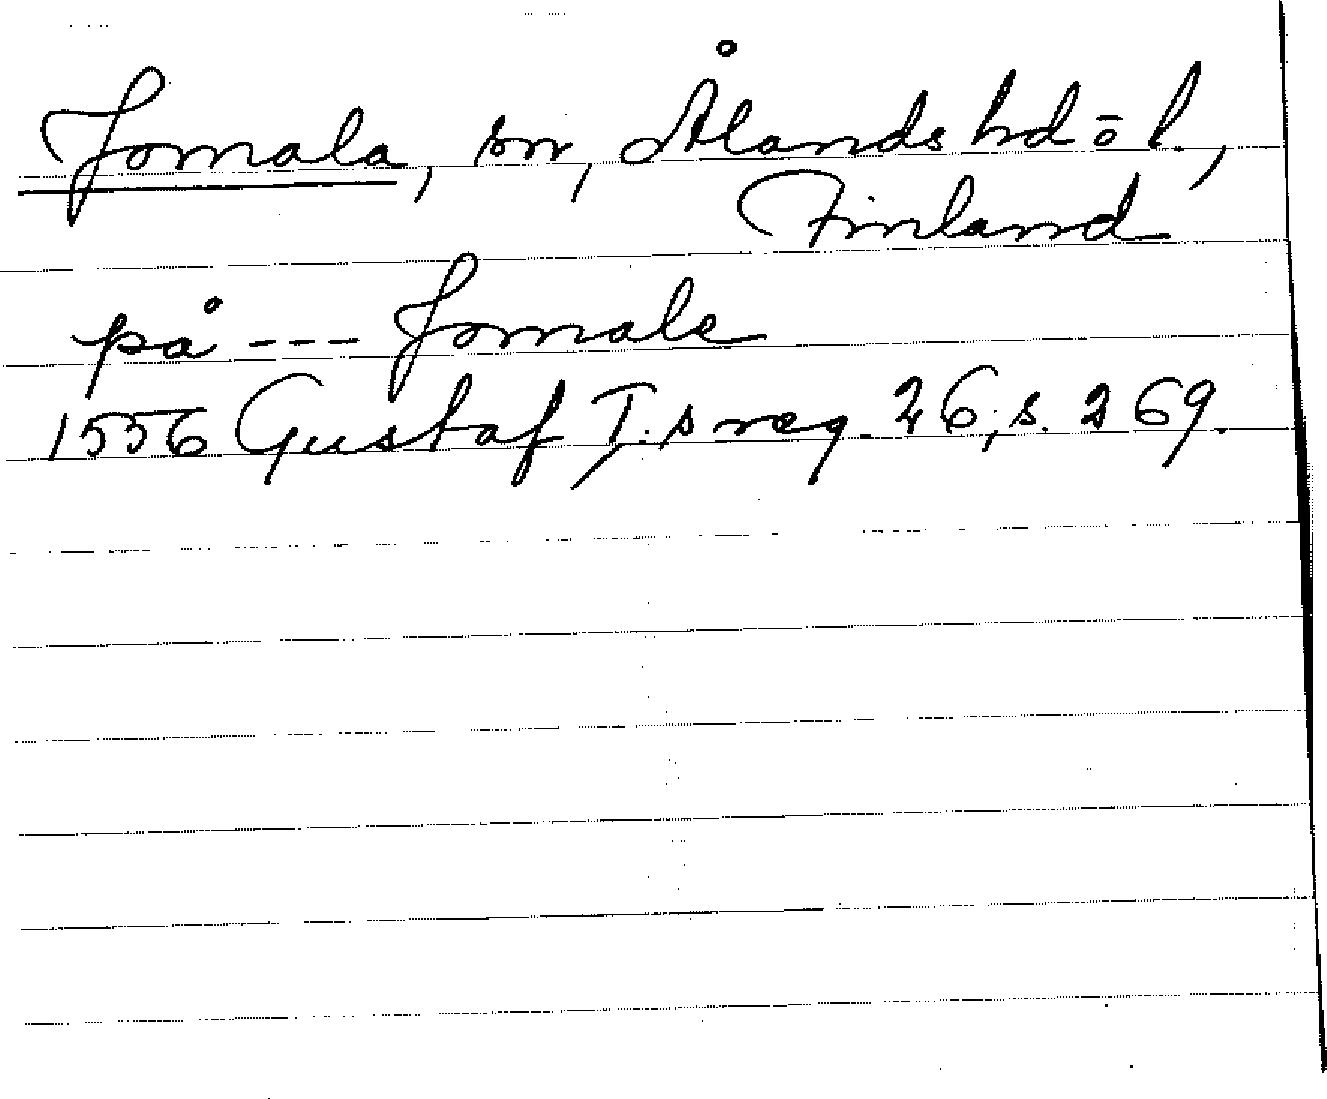 Jomala, sn, Ålands hd o l.,
Finland
på --- Jomale
1556 Gustaf I:s reg. 26, s. 269.